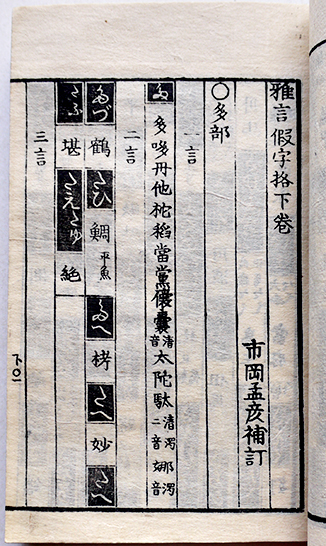 雅言假字格下卷
市岡孟彦補訂
〇多部
一言
多哆丹他柁稻當黨儻囊清音太陀馱清濁二音娜濁音
二言
たづ 鶴 たひ 鯛 平魚 たへ 栲 たへ 妙 たへ
たふ 堪 たえたゆ 絶
三言
下〇一